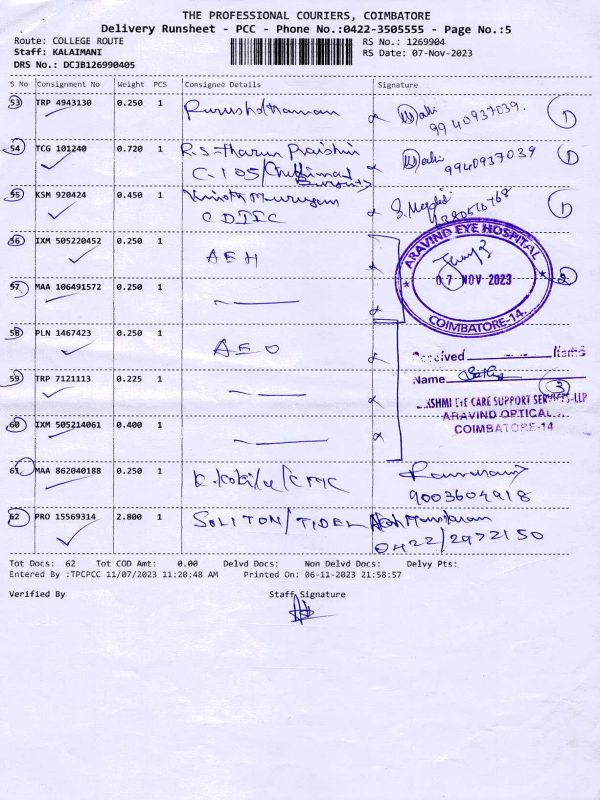 THE PROFESSIONAL COURIERS, COIMBATORE
Delivery Runsheet - PCC - Phone No.:0422-3505555 - Page No.:5
Route: COLLEGE ROUTE
RS No.: 1269904
Staff: KALAIMANI
RS Date: 07-Nov-2023
DRS No.: DCJB126990405
S No Consignment No Weight PCS Consignee Details Signature
53 TRP 4943130 0.250 1 Purushothaman
9940937039. 1
54 TCG 101240 0.720 1 R.S-Tharun
C-105/ 9940937039 1
55 KSM 920424 0.450 1 Murugan
CDTEC 1
56 IXM 505220452 0.250 1 AEH
ARAVIND EYE HOSPITAL
07 NOV 2023
COIMBATORE-14.
2
57 MAA 106491572 0.250 1
58 PLN 1467423 0.250 1 AEO
Received Items
59 TRP 7121113 0.225 1
Name 3
EYE CARE SUPPORT SERVICES-LLP
ARAVIND OPTICAL
COIMBATORE-14
60 IXM 505214061 0.400 1
61 MAA 862040188 0.250 1
9003604918
62 PRO 15569314 2.800 1 SOLITON/TIDEL
0422/2972150
Tot Docs: 62 Tot COD Amt: 0.00 Delvd Docs: Non Delvd Docs: Delvy Pts:
Entered By :TPCPCC 11/07/2023 11:20:48 AM Printed On: 06-11-2023 21:58:57
Verified By Staff Signature